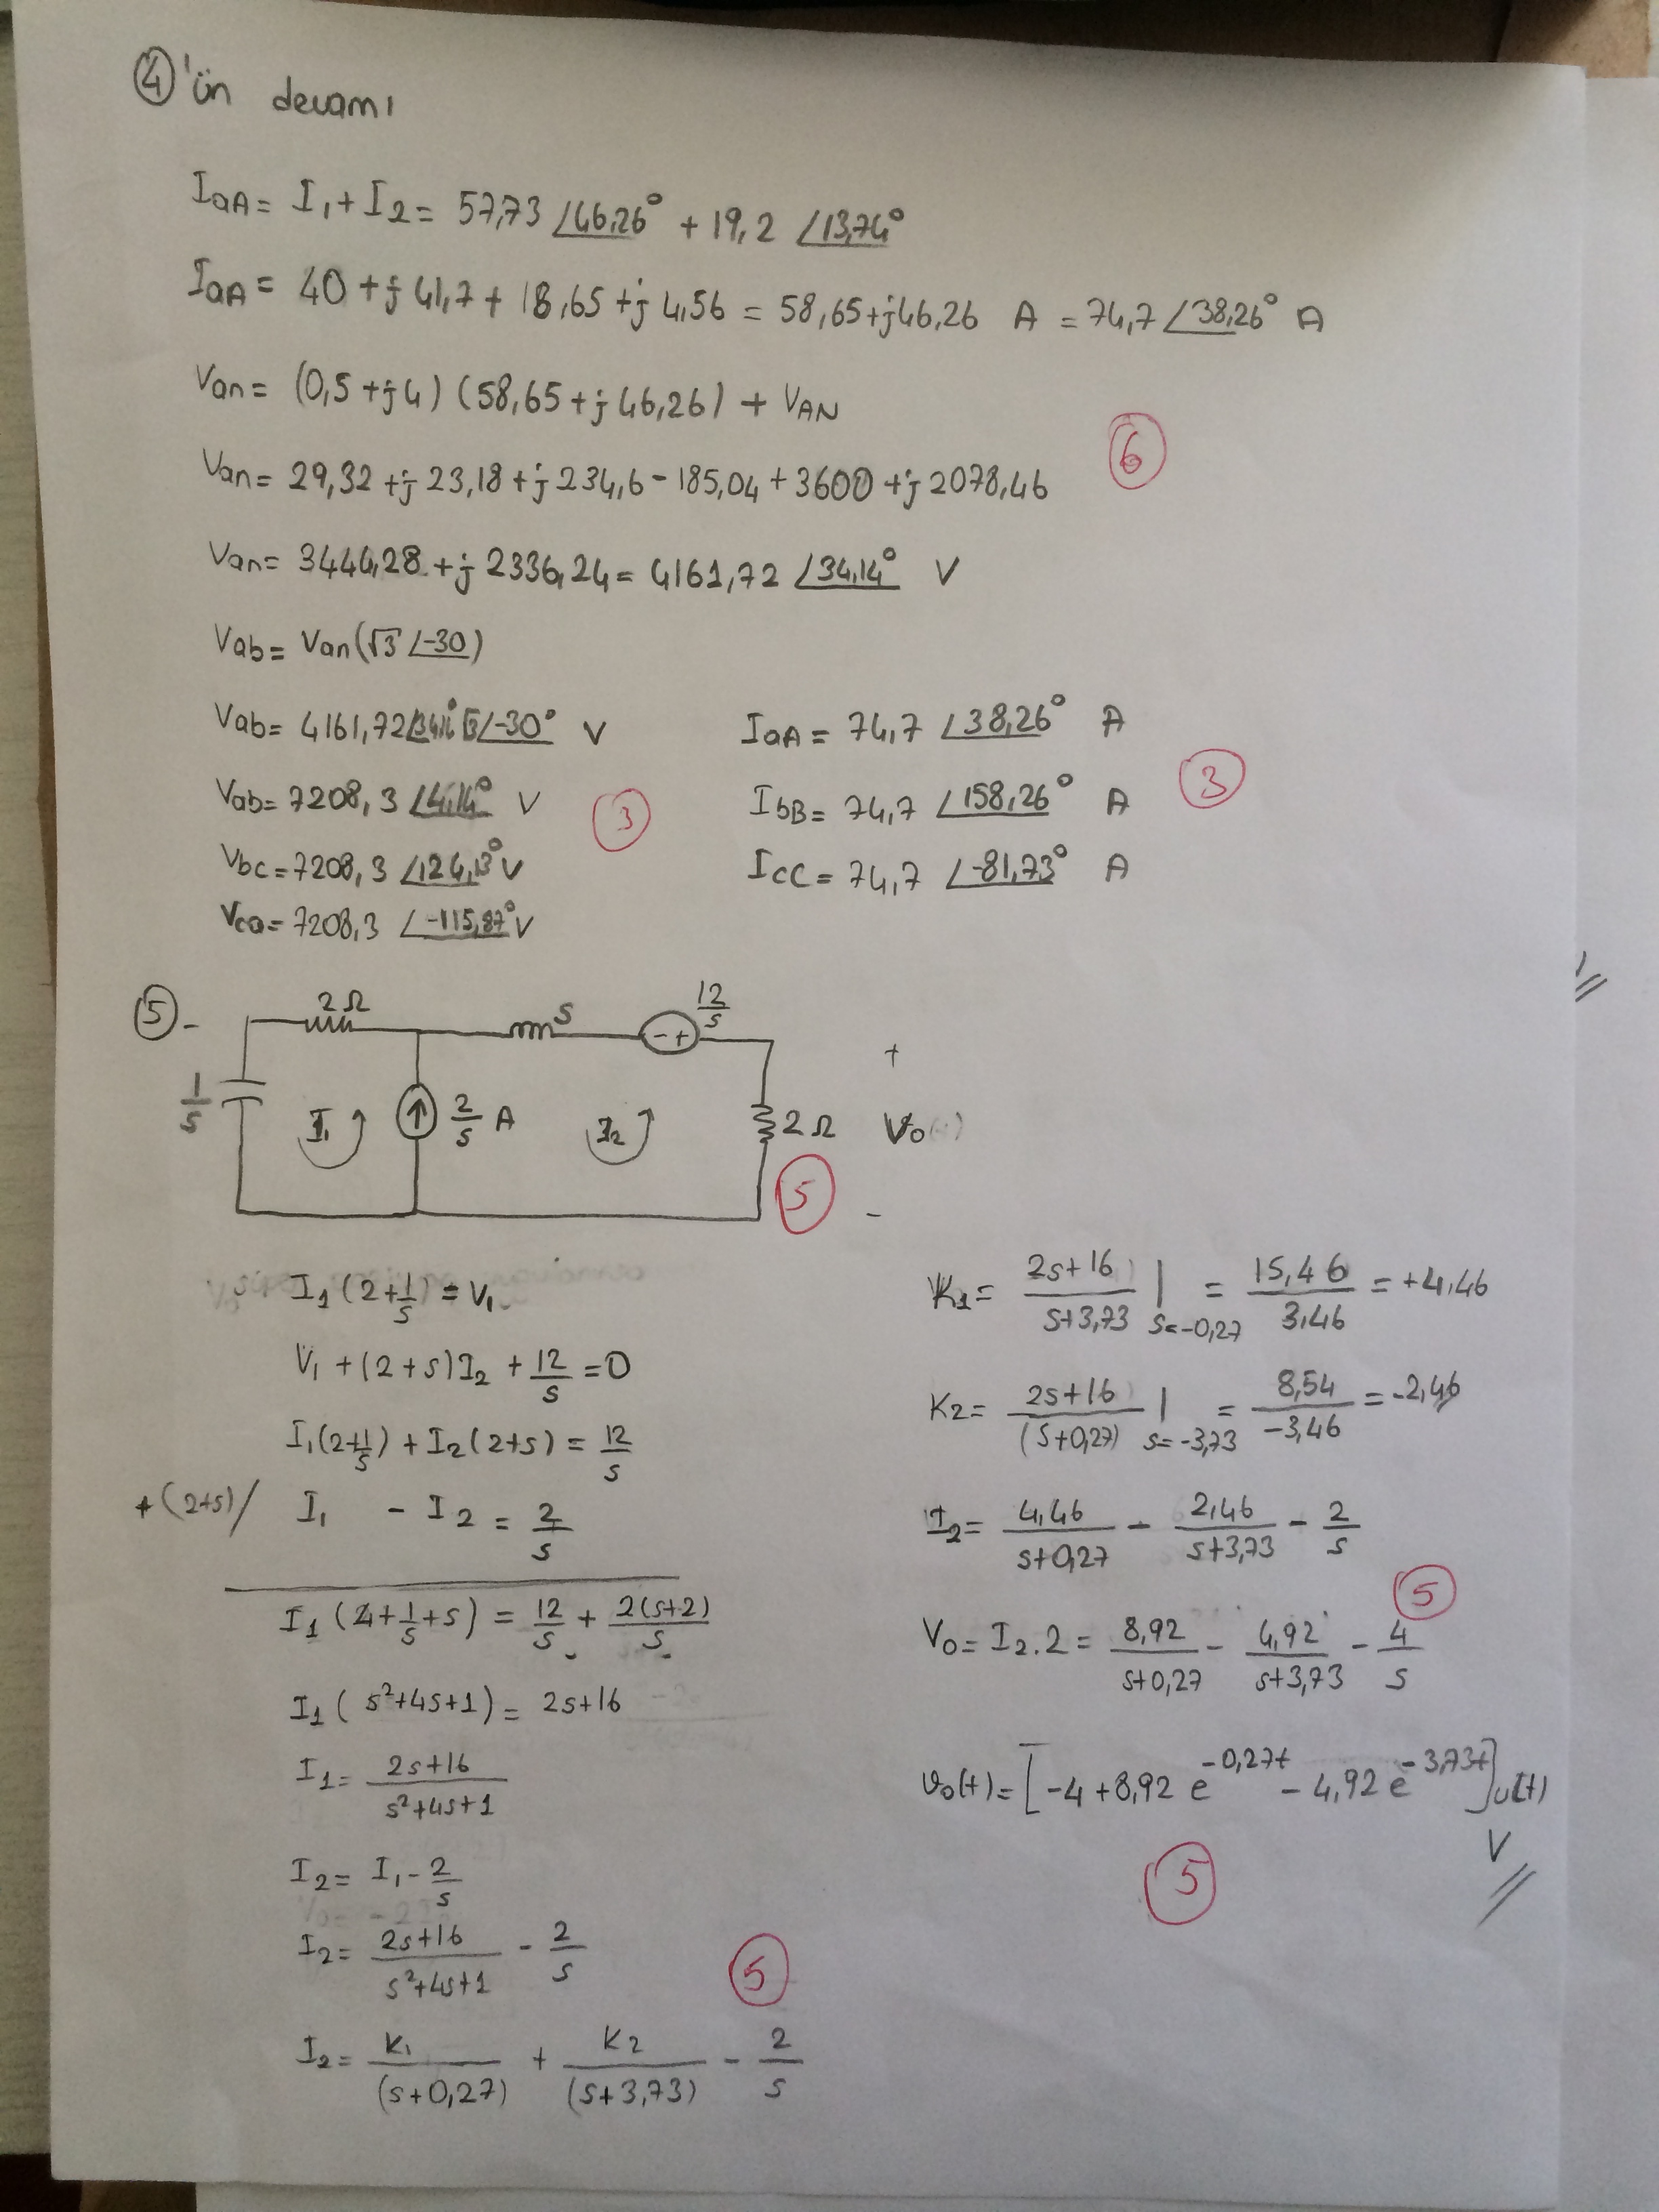 ④'ün devamı
IaA = I1 + I2 = 57,73 ∠46,26° + 19,2 ∠13,74°
IaA = 40 + j 41,7 + 18,65 + j 4,56 = 58,65 + j46,26 A = 74,7 ∠38,26° A
Van = (0,5 + j4) (58,65 + j 46,26) + VAN
Van = 29,32 + j 23,18 + j 234,6 - 185,04 + 3600 + j 2078,46
⑥
Van = 3444,28 + j 2336,24 = 4161,72 ∠34,14° V
Vab = Van(√3 ∠-30)
Vab = 4161,72∠34,14° √3∠-30° V
Vab = 7208,3 ∠4,14° V
Vbc = 7208,3 ∠124,13° V
Vca = 7208,3 ∠-115,87° V
③
IaA = 74,7 ∠38,26° A
IbB = 74,7 ∠158,26° A
ICC = 74,7 ∠-81,73° A
③
⑤-
2Ω
s
12/s
- +
1/s
I1
2/s A
I2
2Ω
+
Vo
-
⑤
I1 (2+1/s) = V1
V1 + (2+s)I2 + 12/s = 0
I1(2+1/s) + I2(2+s) = 12/s
+(2+s)/ I1 - I2 = 2/s
I1 (4+1/s+s) = 12/s + 2(s+2)/s
I1 (s²+4s+1) = 2s+16
I1 = 2s+16 / s²+4s+1
I2 = I1 - 2/s
I2 = 2s+16 / s²+4s+1 - 2/s
⑤
I2 = K1 / (s+0,27) + K2 / (s+3,73) - 2/s
K1 = 2s+16 / s+3,73 | s=-0,27 = 15,46 / 3,46 = +4,46
K2 = 2s+16 / (s+0,27) | s=-3,73 = 8,54 / -3,46 = -2,46
I2 = 4,46 / s+0,27 - 2,46 / s+3,73 - 2/s
⑤
Vo = I2.2 = 8,92 / s+0,27 - 4,92 / s+3,73 - 4/s
vo(t) = [-4 + 8,92 e^-0,27t - 4,92 e^-3,73t]u(t)
V
⑤